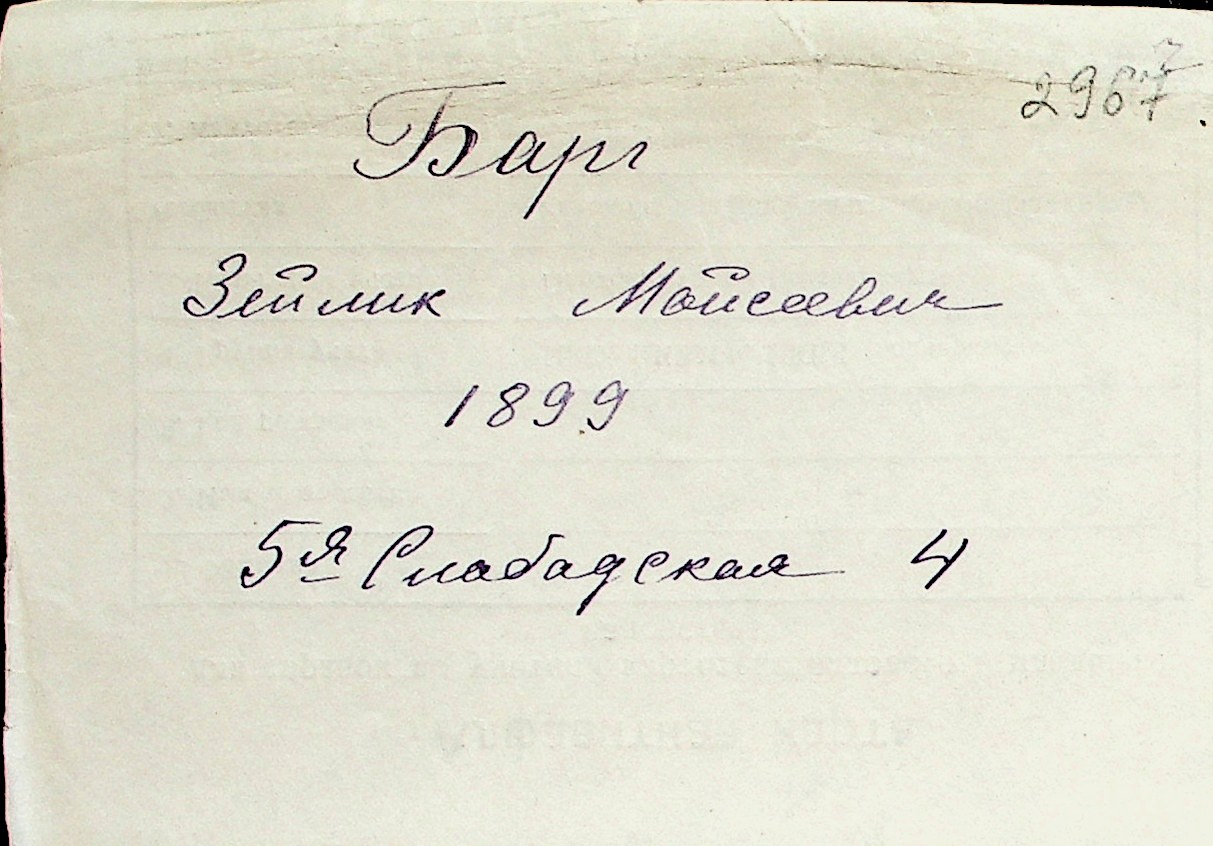 2967
Барг
Зейлик Мойсеевич
1899
5я Слабадская 4